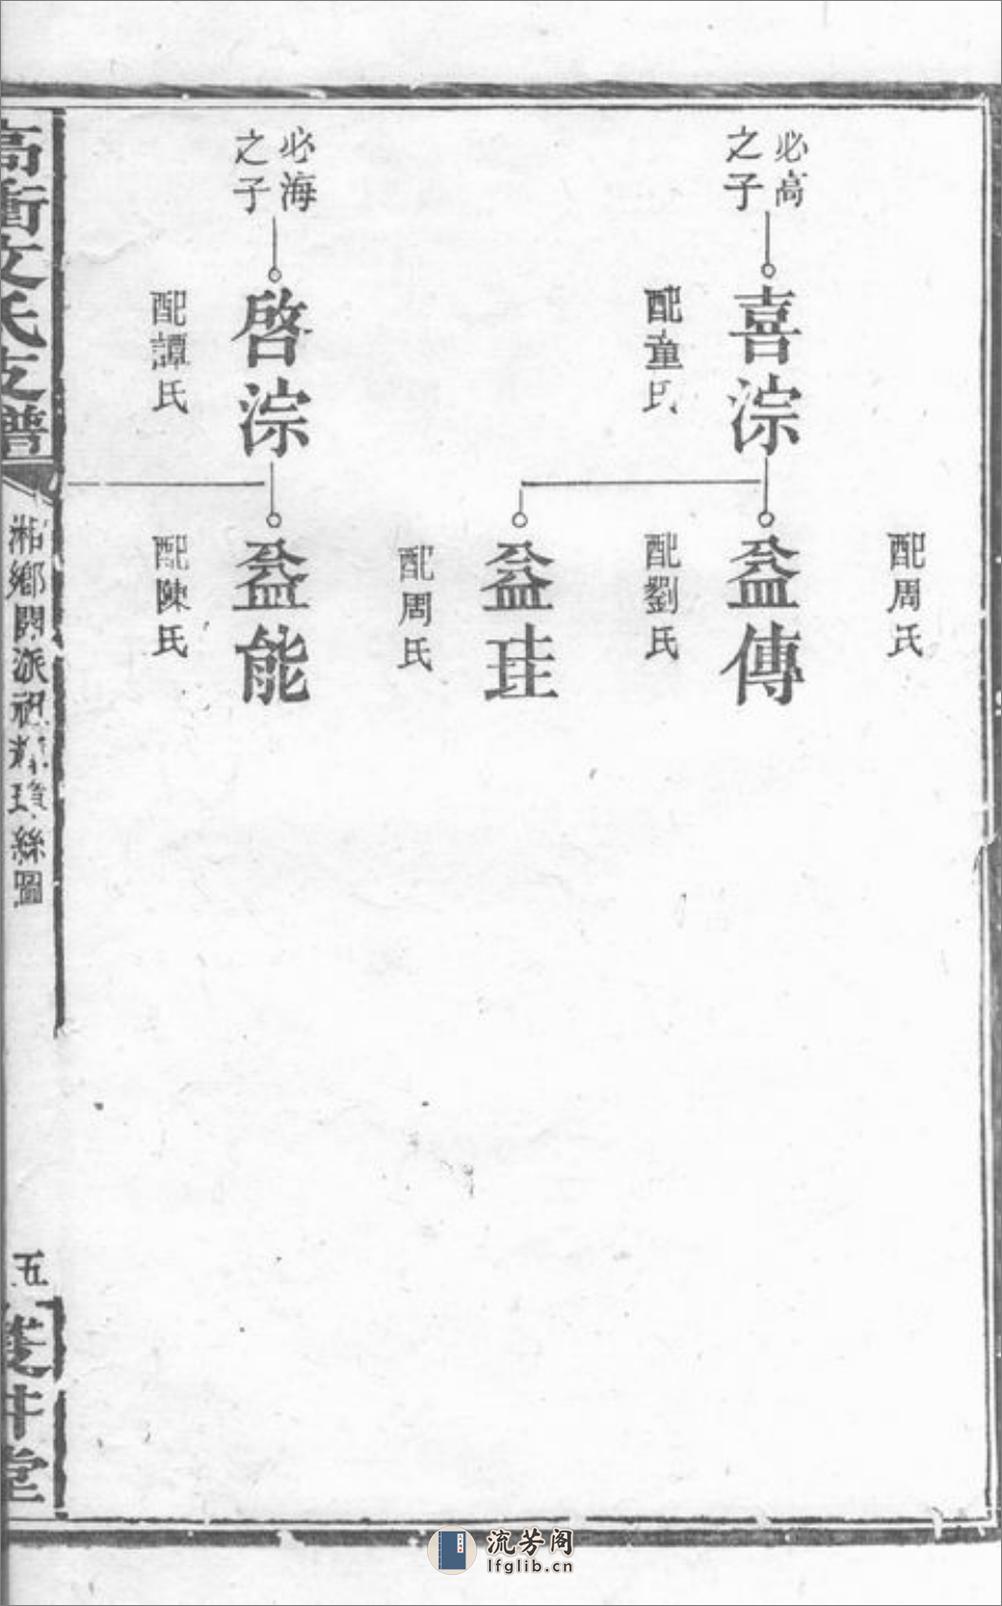 配周氏
必高
之子
喜淙
益傳
配童氏
配劉氏
益珪
配周氏
必海
之子
啓淙
益能
配譚氏
配陳氏
高衝文氏支譜
湘鄉開派祖
絲圖
五
井堂
流芳阁
lfglib.cn